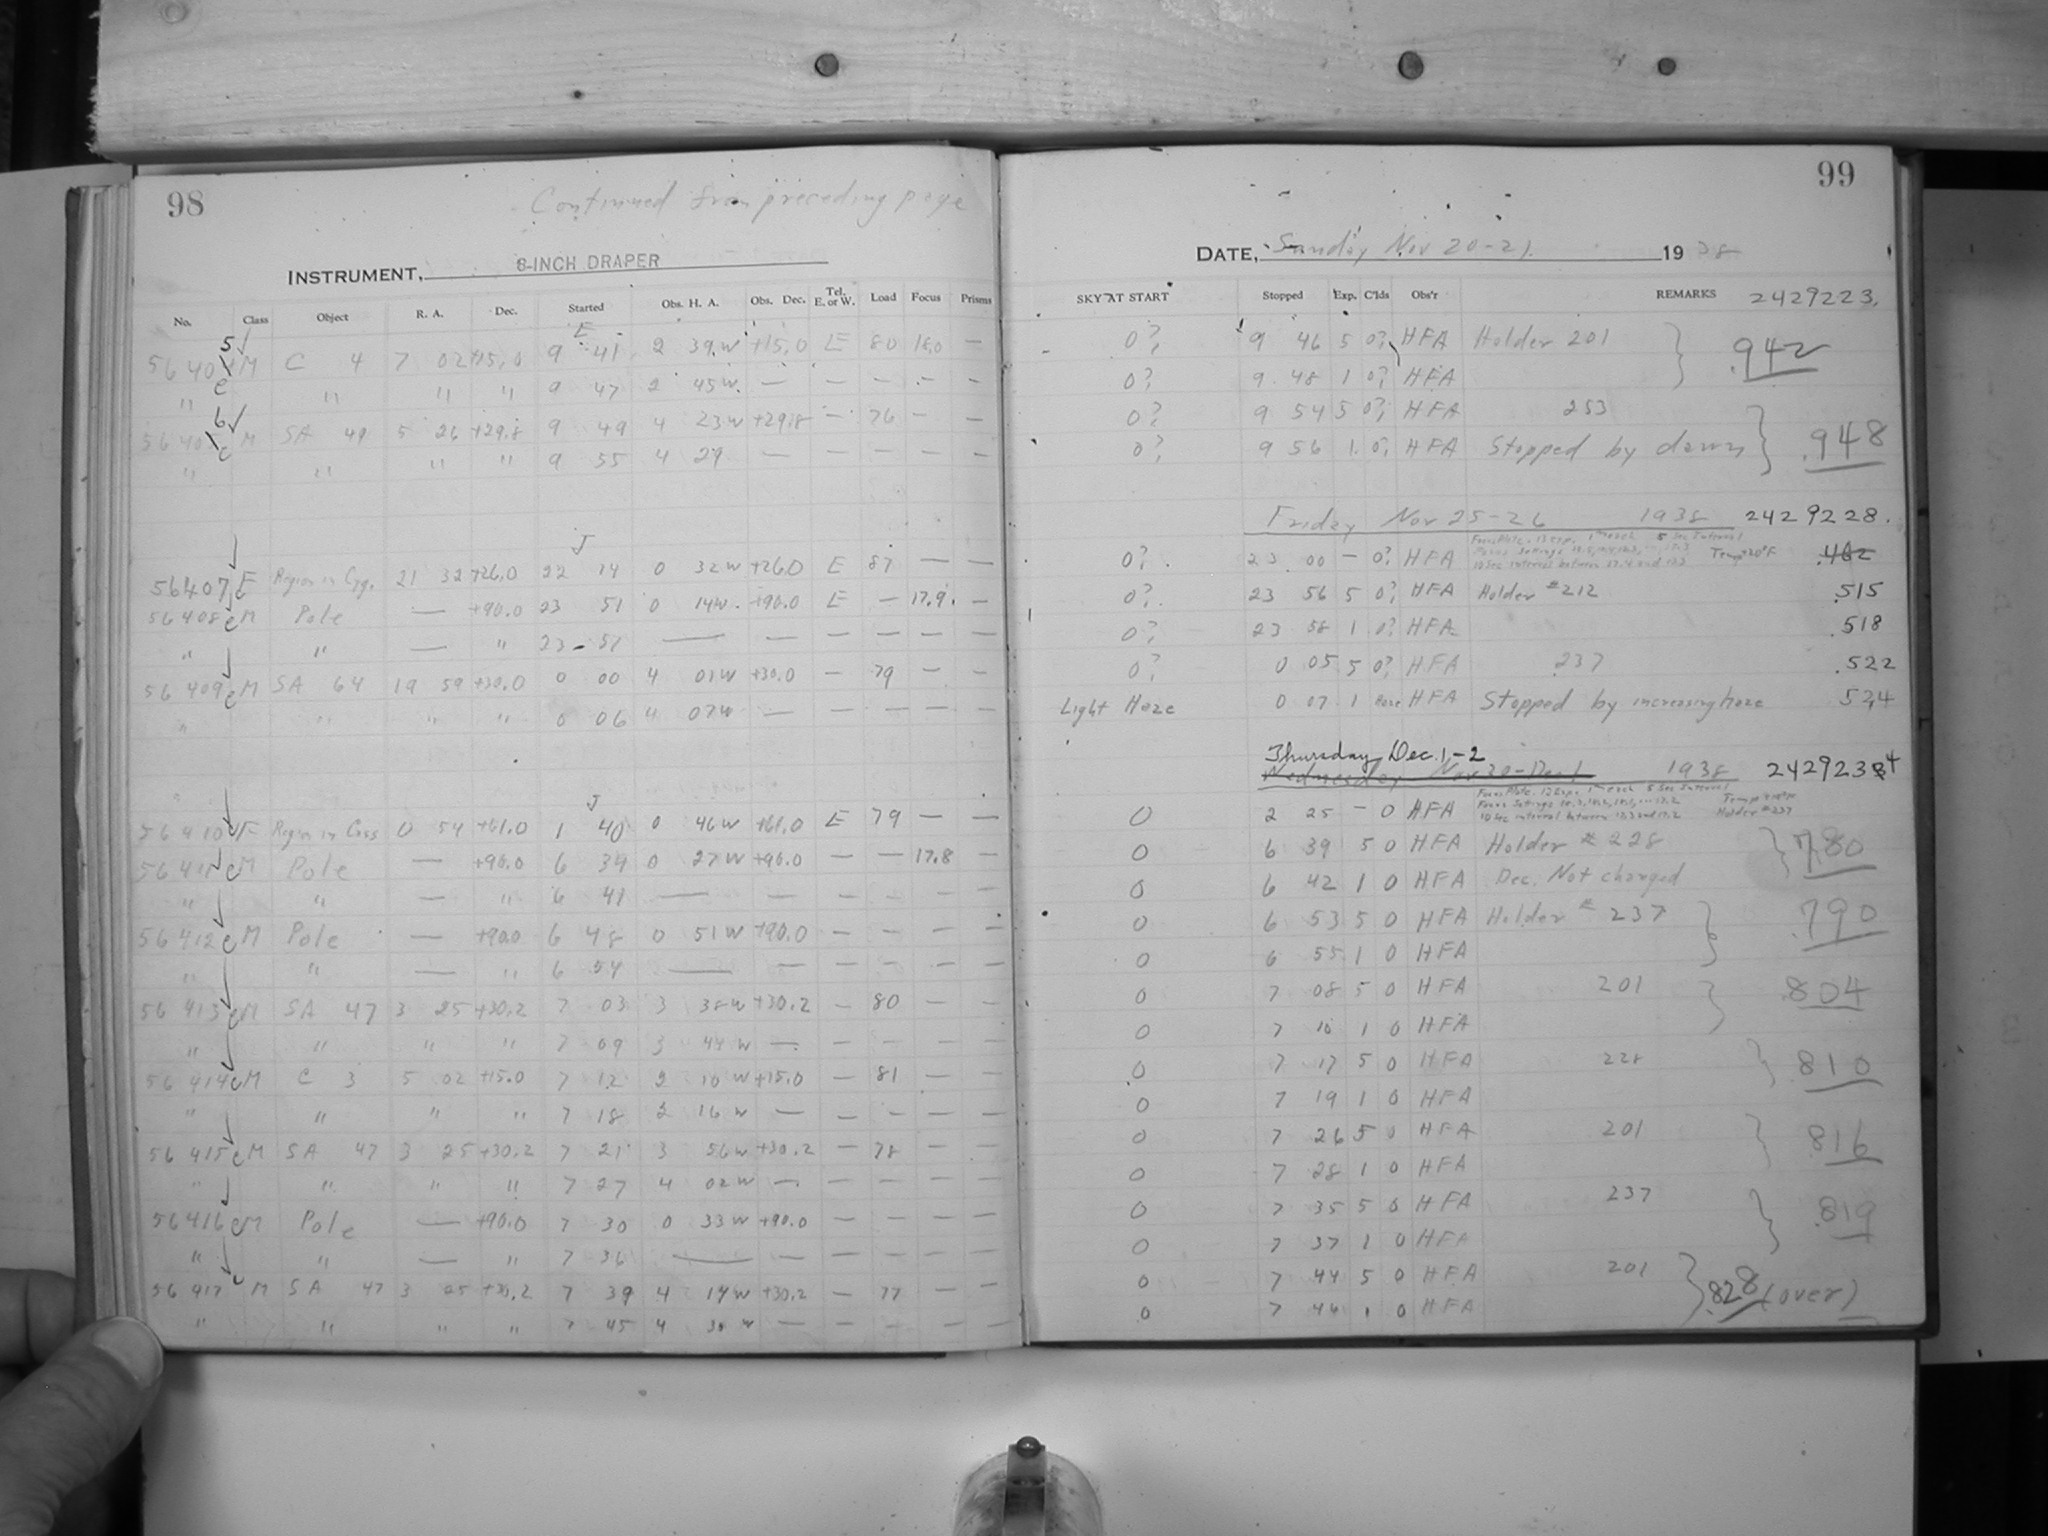 98
Continued from preceding page
INSTRUMENT, 8-INCH DRAPER
No. Class Object R. A. Dec. Started Obs. H. A. Obs. Dec. Tel. E. or W. Load Focus Prisms
E
56405 c M C 4 7 02 +15.0 9 41 2 39 W +15.0 E 80 18.0 —
" " " " 9 47 2 45 W — — — — —
56406 c M SA 49 5 26 +29.8 9 49 4 23 W +29.8 — 76 — —
" " " " 9 55 4 29 — — — — —
J
56407 F Region in Cyg. 21 32 +26.0 22 14 0 32 W +26.0 E 87 — —
56408 c M Pole — +90.0 23 51 0 14 W +90.0 E — 17.9 —
" " — " 23 57 — — — — — —
56409 c M SA 64 19 59 +30.0 0 00 4 01 W +30.0 — 79 — —
" " " " 0 06 4 07 W — — — — —
J
56410 F Region in Cass 0 54 +61.0 1 40 0 46 W +61.0 E 79 — —
56411 c M Pole — +90.0 6 34 0 27 W +90.0 — — 17.8 —
" " — " 6 41 — — — — — —
56412 c M Pole — +90.0 6 48 0 51 W +90.0 — — — —
" " — " 6 54 — — — — — —
56413 c M SA 47 3 25 +30.2 7 03 3 38 W +30.2 — 80 — —
" " " " 7 09 3 44 W — — — — —
56414 c M C 3 5 02 +15.0 7 12 2 10 W +15.0 — 81 — —
" " " " 7 18 2 16 W — — — — —
56415 c M SA 47 3 25 +30.2 7 21 3 56 W +30.2 — 78 — —
" " " " 7 27 4 02 W — — — — —
56416 c M Pole — +90.0 7 30 0 33 W +90.0 — — — —
" " — " 7 36 — — — — — —
56417 c M SA 47 3 25 +30.2 7 39 4 14 W +30.2 — 77 — —
" " " " 7 45 4 W — — — — —
99
DATE, Sunday Nov 20-21 1938
SKY AT START Stopped Exp. C'lds Obs'r REMARKS 2429223.
0? 9 46 5 0? HFA Holder 201 .942
0? 9 48 1 0? HFA
0? 9 54 5 0? HFA 253
0? 9 56 1 0? HFA Stopped by dawn .948
Friday Nov 25-26 1938 2429228.
0? 23 00 — 0? HFA Focus Plate. 13 exp. 1 each 5 Sec Interval Temp +30°F .462
0? 23 56 5 0? HFA Holder #212 .515
0? 23 58 1 0? HFA .518
0? 0 05 5 0? HFA 237 .522
Light Haze 0 07 1 Haze HFA Stopped by increasing haze .524
Thursday Dec. 1-2
Wednesday Nov 30-Dec 1 1938 2429234
0 2 25 — 0 HFA Focus Plate. 12 Exp. 1 each 5 Sec Interval Holder #237
0 6 39 5 0 HFA Holder # 228 .780
0 6 42 1 0 HFA Dec. Not changed
0 6 53 5 0 HFA Holder # 237 .790
0 6 55 1 0 HFA
0 7 08 5 0 HFA 201 .804
0 7 10 1 0 HFA
0 7 17 5 0 HFA 228 810
0 7 19 1 0 HFA
0 7 26 5 0 HFA 201 816
0 7 28 1 0 HFA
0 7 35 5 0 HFA 237 .819
0 7 37 1 0 HFA
0 7 44 5 0 HFA 201 .828 (over)
0 7 46 1 0 HFA